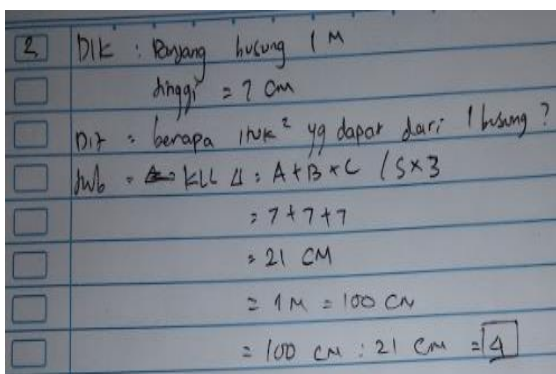 2 DIK : Panjang busung 1 M
tinggi = 7 CM
Dit = berapa yg dapat dari 1 busung ?
Jwb = KLL Δ = A + B + C / S × 3
= 7 + 7 + 7
= 21 CM
= 1 M = 100 CM
= 100 CM : 21 CM = 4